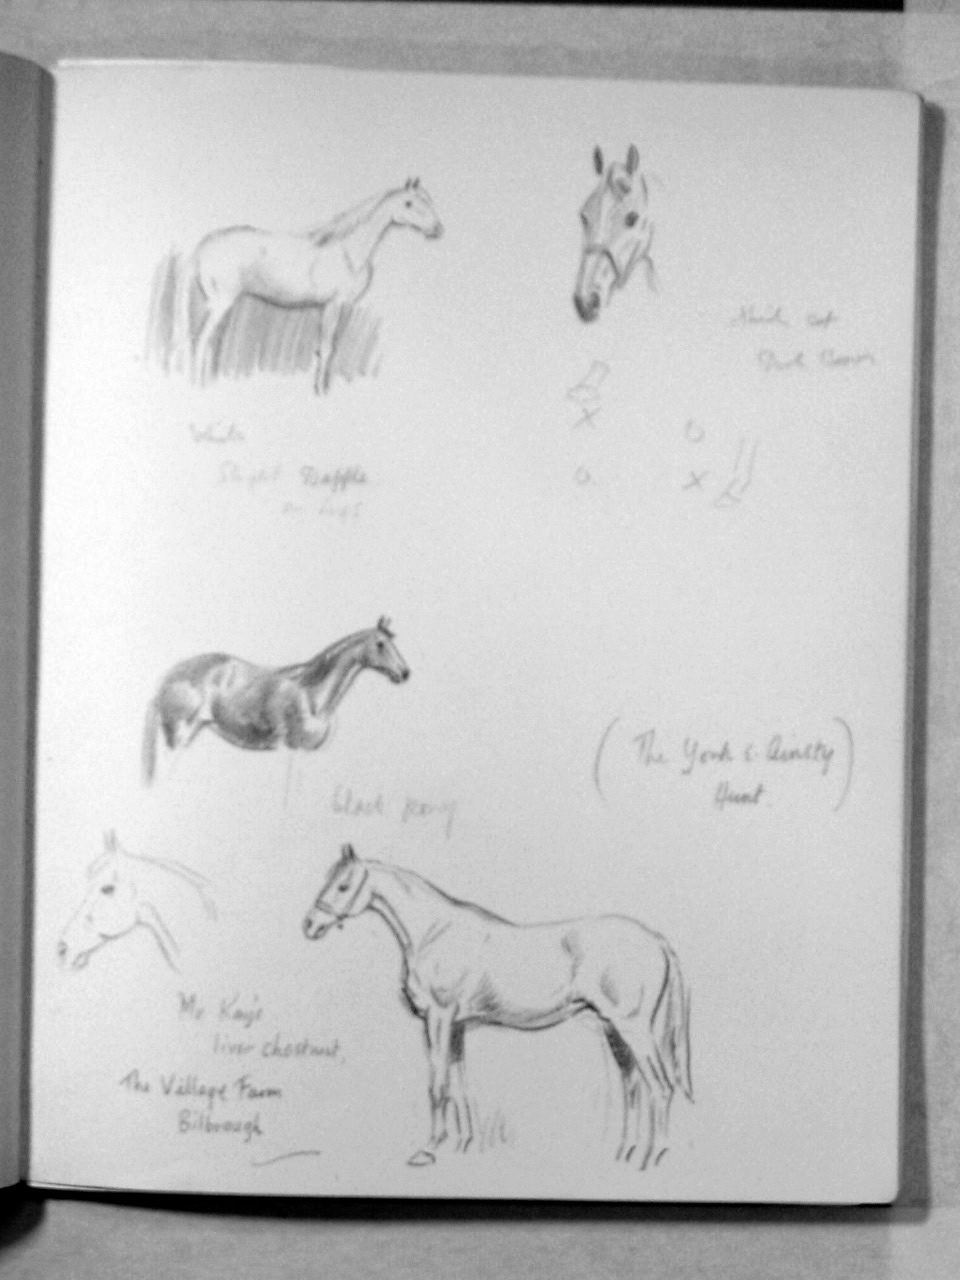 White
Slight Dapple
on legs
x
o
o
x
black pony
(The York & Ainsty
Hunt)
Mr Kay's
liver chestnut,
The Village Farm
Bilbrough